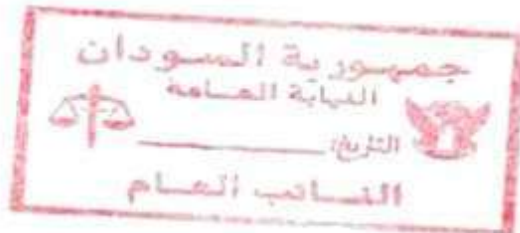 جمهورية السودان
النيابة العامة
التاريخ: ____________
النائب العام